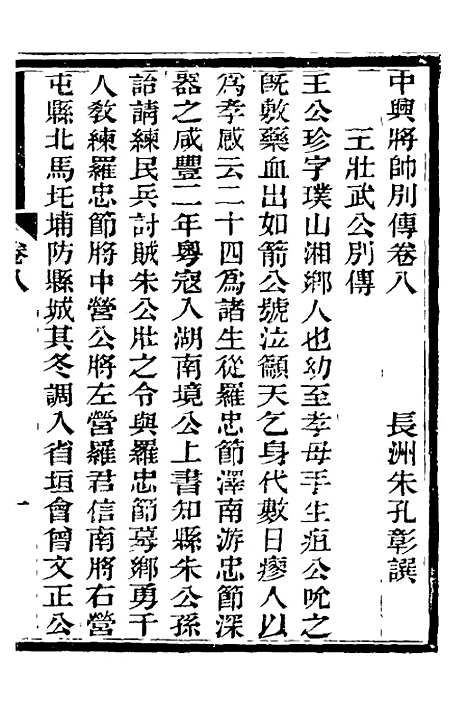 中興將帥別傳卷八 長洲朱孔彰譔
王壯武公別傳
王公珍字璞山湘鄉人也幼至孝母手生疽公吮之
旣敷藥血出如箭公號泣籲天乞身代數日瘳人以
爲孝感云二十四爲諸生從羅忠節澤南游忠節深
器之咸豐二年粵寇入湖南境公上書知縣朱公孫
詒請練民兵討賊朱公壯之令與羅忠節募鄉勇千
人敎練羅忠節將中營公將左營羅君信南將右營
屯縣北馬圫埔防縣城其冬調入省垣會曾文正公
卷八
一